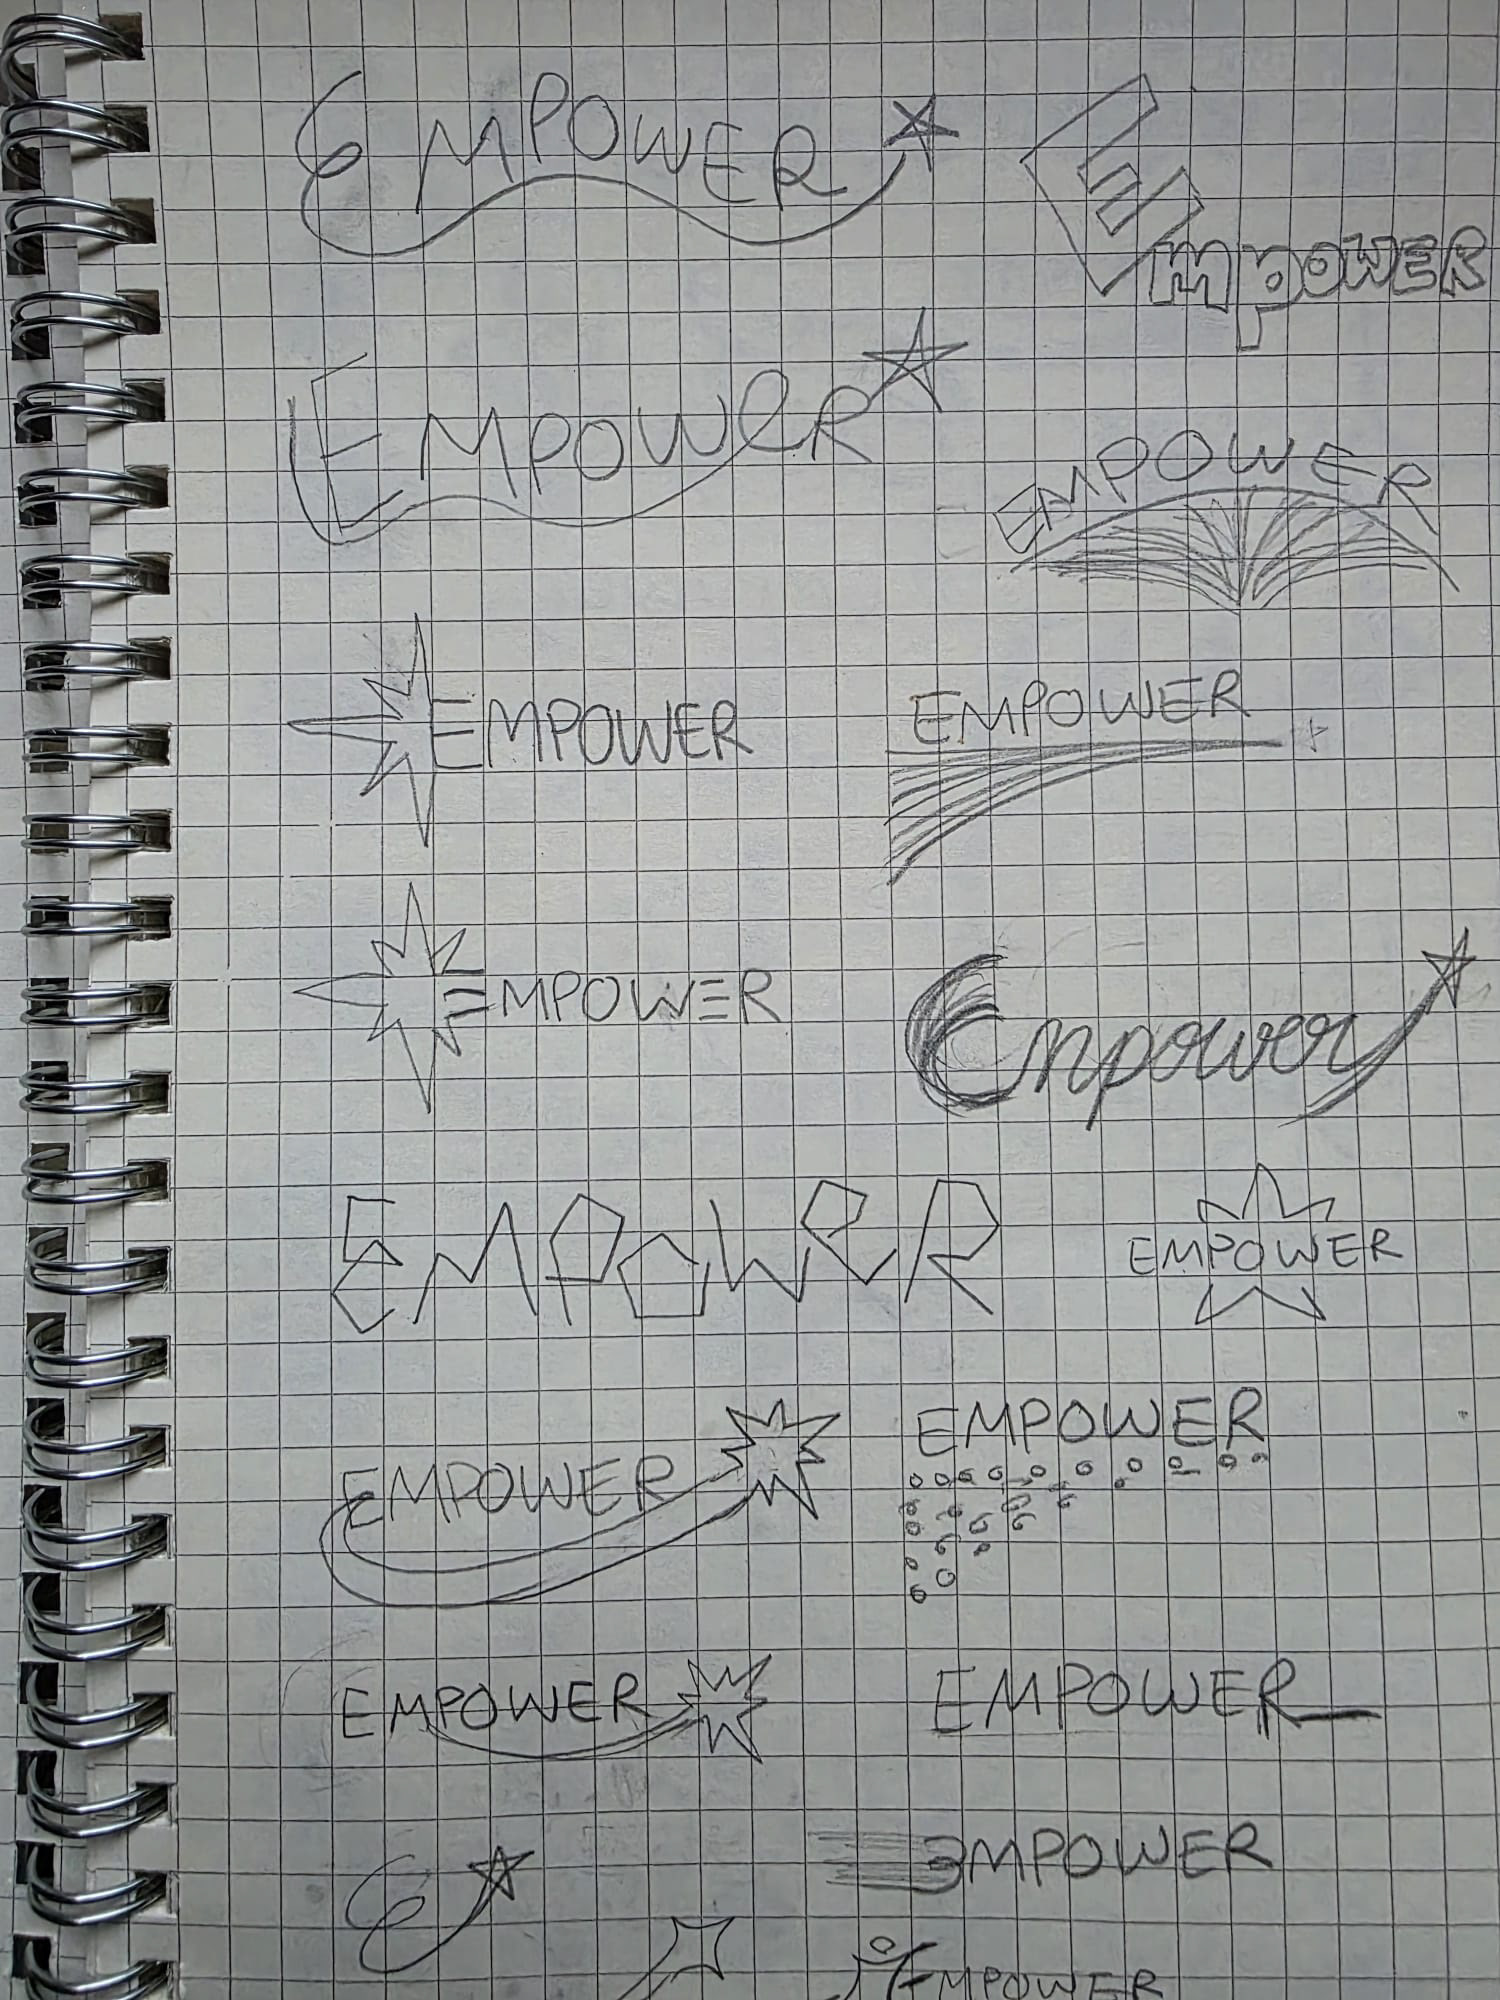 EMPOWER
EmpowER
EMPOWeR
EMPOWER
EMPOWER
EMPOWER
EMPOWER
Empower
EMPOWeR
EMPOWER
EMPOWER
EMPOWER
EMPOWER
EMPOWER
E
EMPOWER
EMPOWER